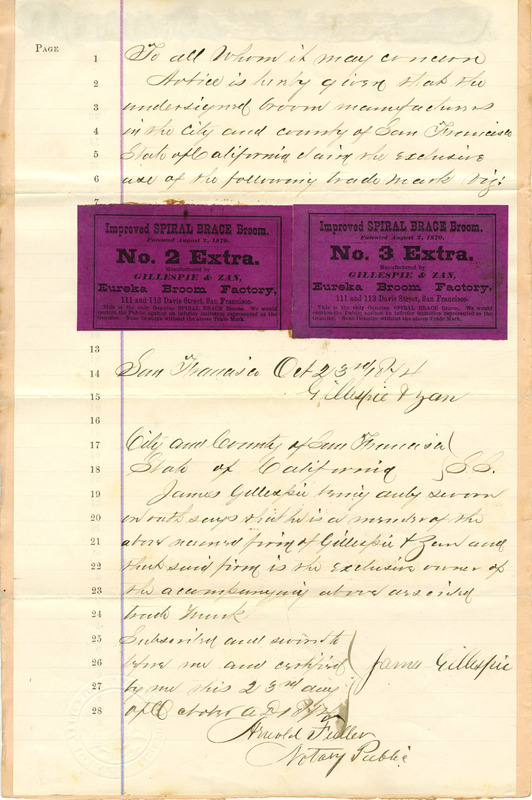 PAGE
1 To all whom it may concern
2 Notice is herby given that the
3 undersigned broom manufacturers
4 in the City and county of San Francisco
5 State of California claim the exclusive
6 use of the following trade mark viz:
7
Improved SPIRAL BRACE Broom.
Patented August 2, 1870.
No. 2 Extra.
Manufactured by
GILLESPIE & ZAN,
Eureka Broom Factory,
111 and 113 Davis Street, San Francisco.
This is the only Genuine SPIRAL BRACE Broom. We would
caution the Public against an inferior imitation represented as the
Genuine. None Genuine without the above Trade Mark.
Improved SPIRAL BRACE Broom.
Patented August 2, 1870.
No. 3 Extra.
Manufactured by
GILLESPIE & ZAN,
Eureka Broom Factory,
111 and 113 Davis Street, San Francisco.
This is the only Genuine SPIRAL BRACE Broom. We would
caution the Public against an inferior imitation represented as the
Genuine. None Genuine without the above Trade Mark.
13
14 San Francisco Oct 23rd 1874
15 Gillespie & Zan
16
17 City and County of San Francisco
18 State of California } S.S.
19 James Gillespie being duly sworn
20 on oath says that he is a member of the
21 above named firm of Gillespie & Zan and
22 that said firm is the exclusive owner of
23 the acompanying above described
24 trade mark
25 Subscribed and sworn to
26 before me and certified James Gillespie
27 by me this 23rd day
28 of October A.D. 1874
Arnold Fuller
Notary Public